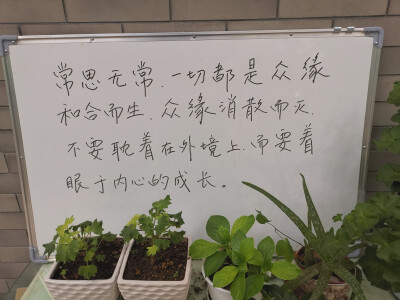 常思无常、一切都是众缘
和合而生、众缘消散而灭、
不要耽着在外境上、而要着
眼于内心的成长。